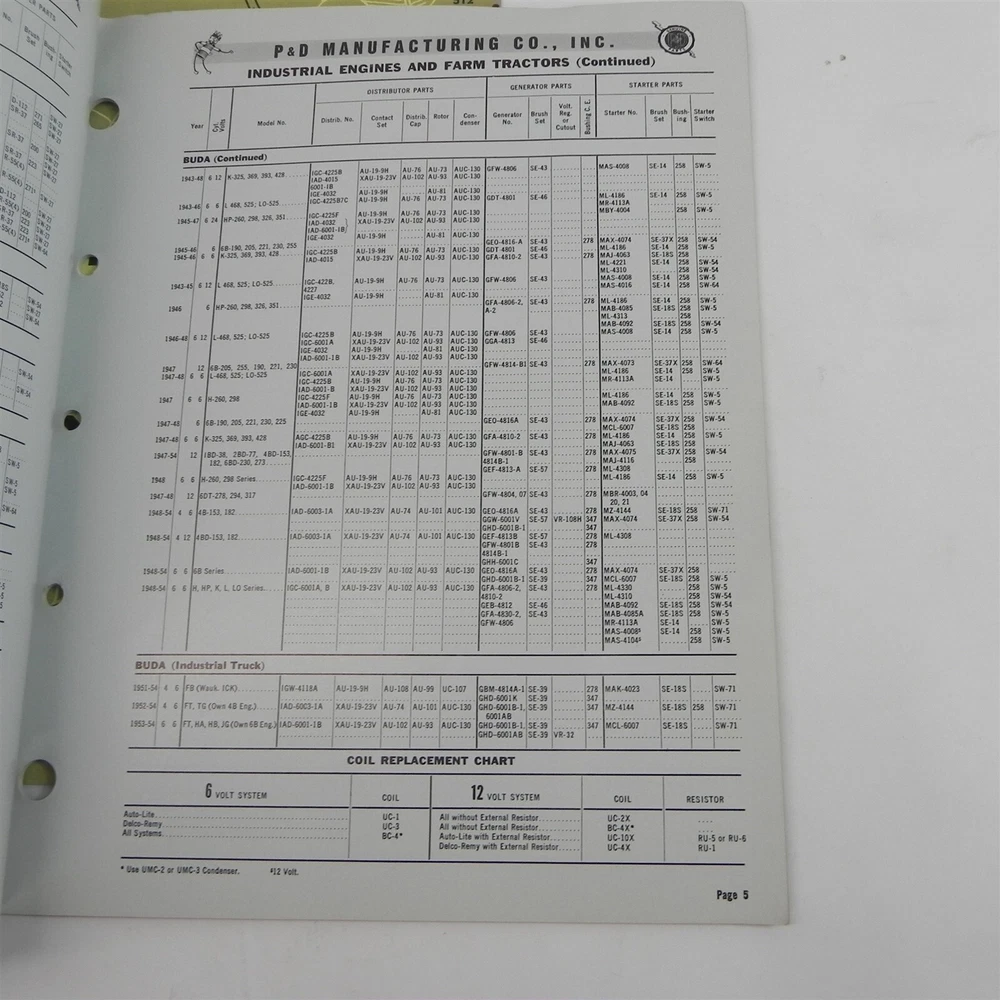 512
P&D MANUFACTURING CO., INC.
INDUSTRIAL ENGINES AND FARM TRACTORS (Continued)
DISTRIBUTOR PARTS GENERATOR PARTS STARTER PARTS
Year Cyl. Volts Model No. Distrib. No. Contact Set Distrib. Cap Rotor Condenser Generator No. Brush Set Volt. Reg. or Cutout Bushing C. E. Starter No. Brush Set Bushing Starter Switch
BUDA (Continued)
1943-48 6 12 K-325, 369, 393, 428 IGC-4225B AU-19-9H AU-76 AU-73 AUC-130 GFW-4806 SE-43 MAS-4008 SE-14 258 SW-5
IAD-4015 XAU-19-23V AU-102 AU-93 AUC-130
6001-IB
IGE-4032 AU-19-9H AU-81 AUC-130
1943-46 6 6 L 468, 525; LO-525 IGC-4225B7C AU-19-9H AU-76 AU-73 AUC-130 GDT-4801 SE-46 ML-4186 SE-14 258 SW-5
MR-4113A
1945-47 6 24 HP-260, 298, 326, 351 IGC-4225F AU-19-9H AU-76 AU-73 AUC-130 MBY-4004 258 SW-5
IAD-4032 XAU-19-23V AU-102 AU-93 AUC-130
IAD-6001-IB
IGE-4032 AU-19-9H AU-81 AUC-130
1945-46 6 6B-190, 205, 221, 230, 255 GEO-4816-A SE-43 278 MAX-4074 SE-37X 258 SW-54
1945-46 6 6 K-325, 369, 393, 428 IGC-4225B AU-19-9H AU-76 AU-73 AUC-130 GDT 4801 SE-46 ML-4186 SE-14 258 SW-5
IAD-4015 XAU-19-23V AU-102 AU-93 AUC-130 GFA-4810-2 SE-43 278 MAJ-4063 SE-18S 258
ML-4221 SE-14 258 SW-54
ML-4310 258 SW-54
1943-45 6 12 L 468, 525; LO-525 IGC-422B, AU-19-9H AU-76 AU-73 AUC-130 GFW-4806 SE-43 MAS-4008 SE-14 258 SW-5
4227 MAS-4016 SE-14 258 SW-64
IGE-4032 AU-19-9H AU-81 AUC-130
1946 6 HP-260, 298, 326, 351 GFA-4806-2, SE-43 278 ML-4186 SE-14 258 SW-5
A-2 MAB-4085 SE-18S 258 SW-5
ML-4313 258 SW-5
MAB-4092 SE-18S 258 SW-54
1946-48 6 12 L-468, 525; LO-525 IGC-4225B AU-19-9H AU-76 AU-73 AUC-130 GFW-4806 SE-43 MAS-4008 SE-14 258 SW-5
IGC-6001A XAU-19-23V AU-102 AU-93 AUC-130 GGA-4813 SE-46
IGE-4032 AU-19-9H AU-81 AUC-130
IAD-6001-1B XAU-19-23V AU-102 AU-93 AUC-130
1947 12 6B-205, 255, 190, 221, 230 GFW-4814-B1 SE-43 278 MAX-4073 SE-37X 258 SW-64
1947-48 6 6 L-468, 525; LO-525 IGC-6001A XAU-19-23V AU-102 AU-93 AUC-130 ML-4186 SE-14 258 SW-5
IGC-4225B AU-19-9H AU-76 AU-73 AUC-130 MR-4113A SE-14 SW-5
IAD-6001-B XAU-19-23V AU-102 AU-93 AUC-130
1947 6 6 H-260, 298 IGC-4225F AU-19-9H AU-76 AU-73 AUC-130 ML-4186 SE-14 258 SW-5
IAD-6001-1B XAU-19-23V AU-102 AU-93 AUC-130 MAB-4092 SE-18S 258 SW-5
IGE-4032 AU-19-9H AU-81 AUC-130
1947-48 6 6B-190, 205, 221, 230, 225 GEO-4816A SE-43 278 MAX-4074 SE-37X 258 SW-54
MCL-6007 SE-18S 258
1947-48 6 6 K-325, 369, 393, 428 AGC-4225B AU-19-9H AU-76 AU-73 AUC-130 GFA-4810-2 SE-43 278 ML-4186 SE-14 258 SW-5
IAD-6001-B1 XAU-19-23V AU-102 AU-93 AUC-130 MAJ-4063 SE-18S 258
1947-54 12 1BD-38, 2BD-77, 4BD-153, GFW-4801-B SE-43 278 MAX-4075 SE-37X 258 SW-54
182, 6BD-230, 273 4814B-1 MAJ-4116 258
GEF-4813-A SE-57 278 ML-4308
1948 6 6 H-260, 298 Series IGC-4225F AU-19-9H AU-76 AU-73 AUC-130 ML-4186 SE-14 258 SW-5
IAD-6001-1B XAU-19-23V AU-102 AU-93 AUC-130
1947-48 12 6DT-278, 294, 317 GFW-4804, 07 SE-43 278 MBR-4003, 04
20, 21
1948-54 4 6 4B-153, 182 IAD-6003-1A XAU-19-23V AU-74 AU-101 AUC-130 GEO-4816A SE-43 278 MZ-4144 SE-18S 258 SW-71
GGW-6001V SE-57 VR-108H 347 MAX-4074 SE-37X 258 SW-54
GHD-6001B-1 347
1948-54 4 12 4BD-153, 182 IAD-6003-1A XAU-19-23V AU-74 AU-101 AUC-130 GEF-4813B SE-57 278 ML-4308
GFW-4801B SE-43 278
4814B-1
GHH-6001C 347
1948-54 6 6 6B Series IAD-6001-1B XAU-19-23V AU-102 AU-93 AUC-130 GEO-4816A SE-43 278 MAX-4074 SE-37X 258
GHD-6001B-1 SE-39 347 MCL-6007 SE-18S 258 SW-5
1948-54 6 6 H, HP, K, L, LO Series IGC-6001A, B XAU-19-23V AU-102 AU-93 AUC-130 GFA-4806-2, SE-43 278 ML-4330 258 SW-5
4810-2 ML-4310 258 SW-54
GEB-4812 SE-46 MAB-4092 SE-18S 258 SW-54
GFA-4830-2, SE-43 MAB-4085A SE-18S 258 SW-5
GFW-4806 MR-4113A SE-14 SW-5
MAS-4008§ SE-14 258 SW-5
MAS-4104§ 258 SW-5
BUDA (Industrial Truck)
1951-54 4 6 FB (Wauk. ICK) IGW-4118A AU-19-9H AU-108 AU-99 UC-107 GBM-4814A-1 SE-39 278 MAK-4023 SE-18S SW-71
GHD-6001K SE-39 347
1952-54 4 6 FT, TG (Own 4B Eng.) IAD-6003-1A XAU-19-23V AU-74 AU-101 AUC-130 GHD-6001B-1, SE-39 347 MZ-4144 SE-18S 258 SW-71
6001AB
1953-54 6 6 FT, HA, HB, JG (Own 6B Eng.) IAD-6001-1B XAU-19-23V AU-102 AU-93 AUC-130 GHD-6001B-1, SE-39 347 MCL-6007 SE-18S SW-71
GHD-6001AB SE-39 VR-32
COIL REPLACEMENT CHART
6 VOLT SYSTEM COIL 12 VOLT SYSTEM COIL RESISTOR
Auto-Lite UC-1 All without External Resistor UC-2X
Delco-Remy UC-3 All without External Resistor BC-4X*
All Systems BC-4* Auto-Lite with External Resistor UC-10X RU-5 or RU-6
Delco-Remy with External Resistor UC-4X RU-1
* Use UMC-2 or UMC-3 Condenser. §12 Volt.
Page 5